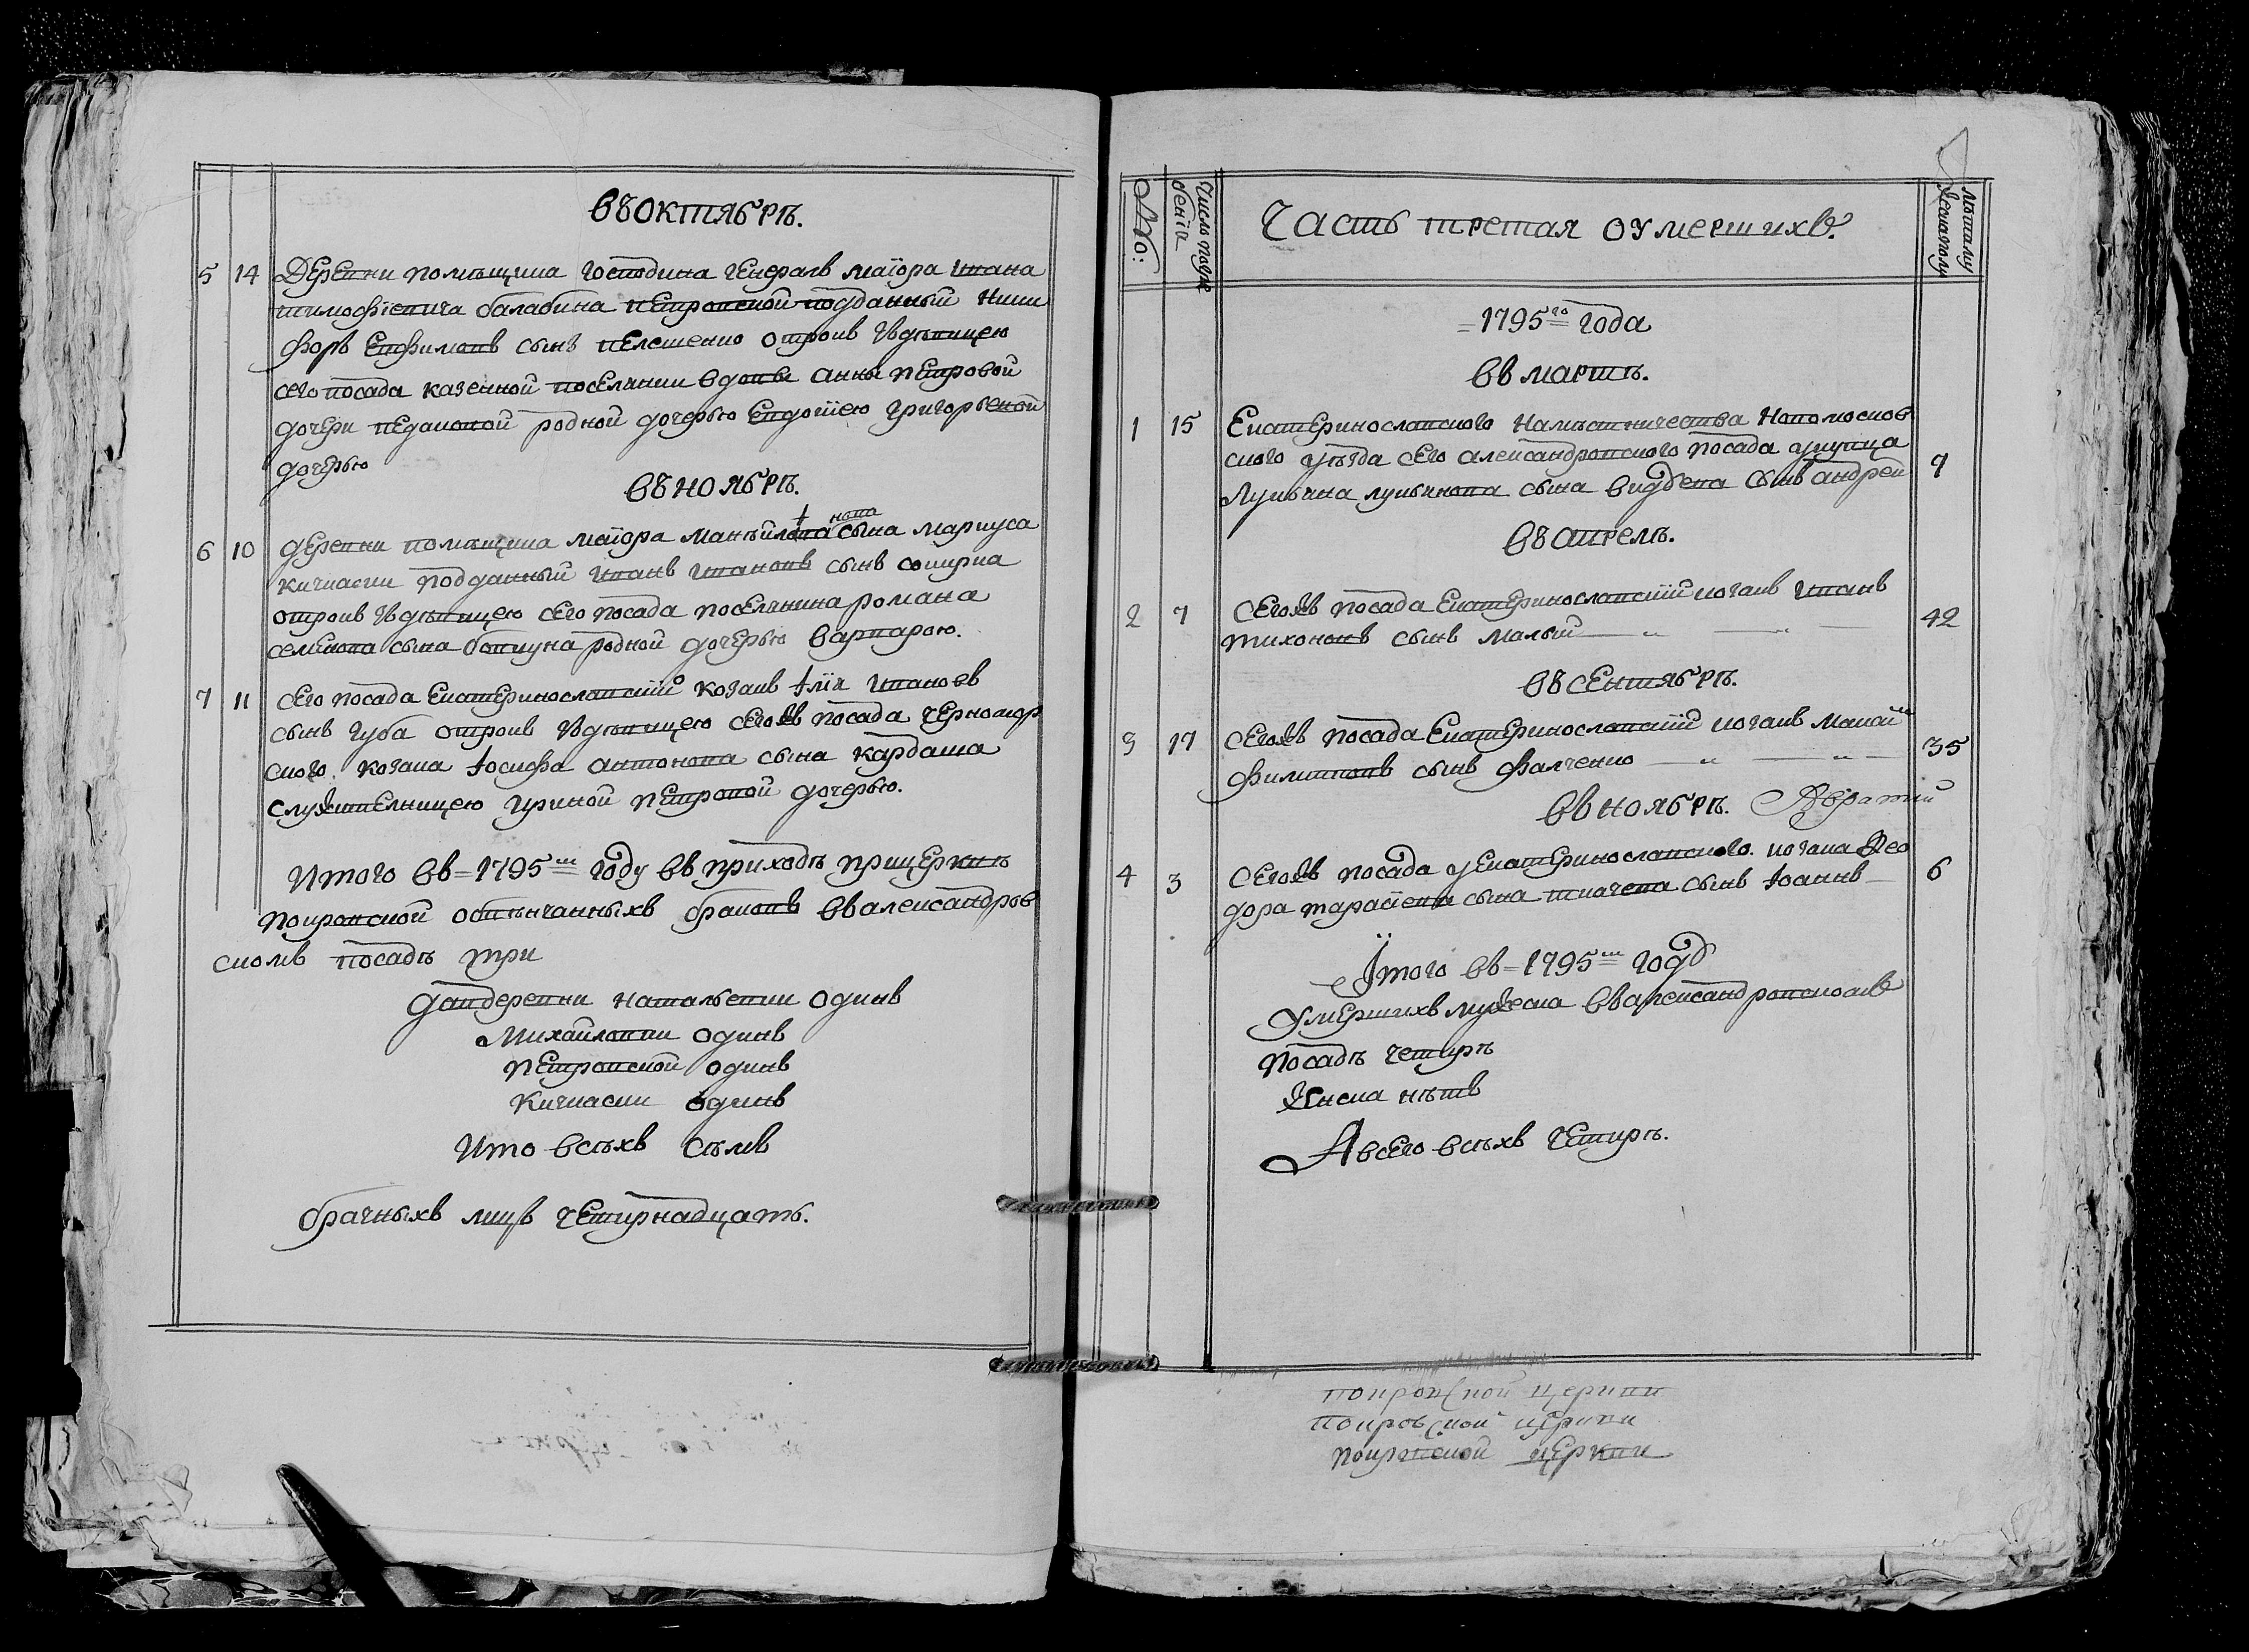 въ октябрѣ.
5 14 Деревни помѣщика господина генералъ маіора ивана
тимофіевича балабина петровской подданный ники
форъ евфимовъ сынъ пелешенко отрокъ з дѣвицею
сего посада казенной поселянки вдовы анны петровой
дочери педановой родной дочерью евдокіею григорьевой
дочерью
въ ноябрѣ.
6 10 деревни помѣщика маіора мануйлова сына маркуса
кичкасски подданный иванъ ивановъ сынъ
отрокъ з дѣвицею сего посада поселянина романа
семенова сына бовкуна родной дочерью варварою.
7 11 Сего посада Екатеринославскій козакъ Ілія ивановъ
сынъ губа отрокъ з дѣвицею сегожъ посада черномор
ского козака іосифа антонова сына кардаша
служителницею ириной петровой дочерью.
Итого въ =1795м годѹ въ приходѣ при церквѣ
покровской обвѣнчанныхъ браковъ въ александров
скомъ посадѣ три
да въ деревни натальевки одинъ
Михайловки одинъ
петровской одинъ
кичкасски одинъ
Ито всѣхъ сѣмъ
брачныхъ лицъ четирнадцать.
№:
Число погре
бенія
Часть третая оумершихъ.
лѣта му
жеска полу
=1795го года
въ мартѣ.
1 15 Екатеринославского Намѣстничества Новомосков
ского уѣзда сего александровского посада у купца
Лукьяна лукьянова сына виддева сынъ андрей 9
въ апрелѣ.
2 7 Сегожъ посада Екатеринославскій козакъ иванъ
тихоновъ сынъ малый 42
въ сентябрѣ.
3 17 Сегожъ посада Екатеринославскій козакъ макси
филиповъ сынъ фалченко 35
въ ноябрѣ.
4 3 Сегожъ посада у Екатеринославского козака Ѳео
дора тарасіева сына ткачева сынъ Іоаннъ 6
Ітого въ =1795м год
Умершихъ мужеска въ александровскомъ
посадѣ четирѣ
Женска нѣтъ
А всего всѣхъ четирѣ.
покровской церкви
покровской церкви
покровской церкви